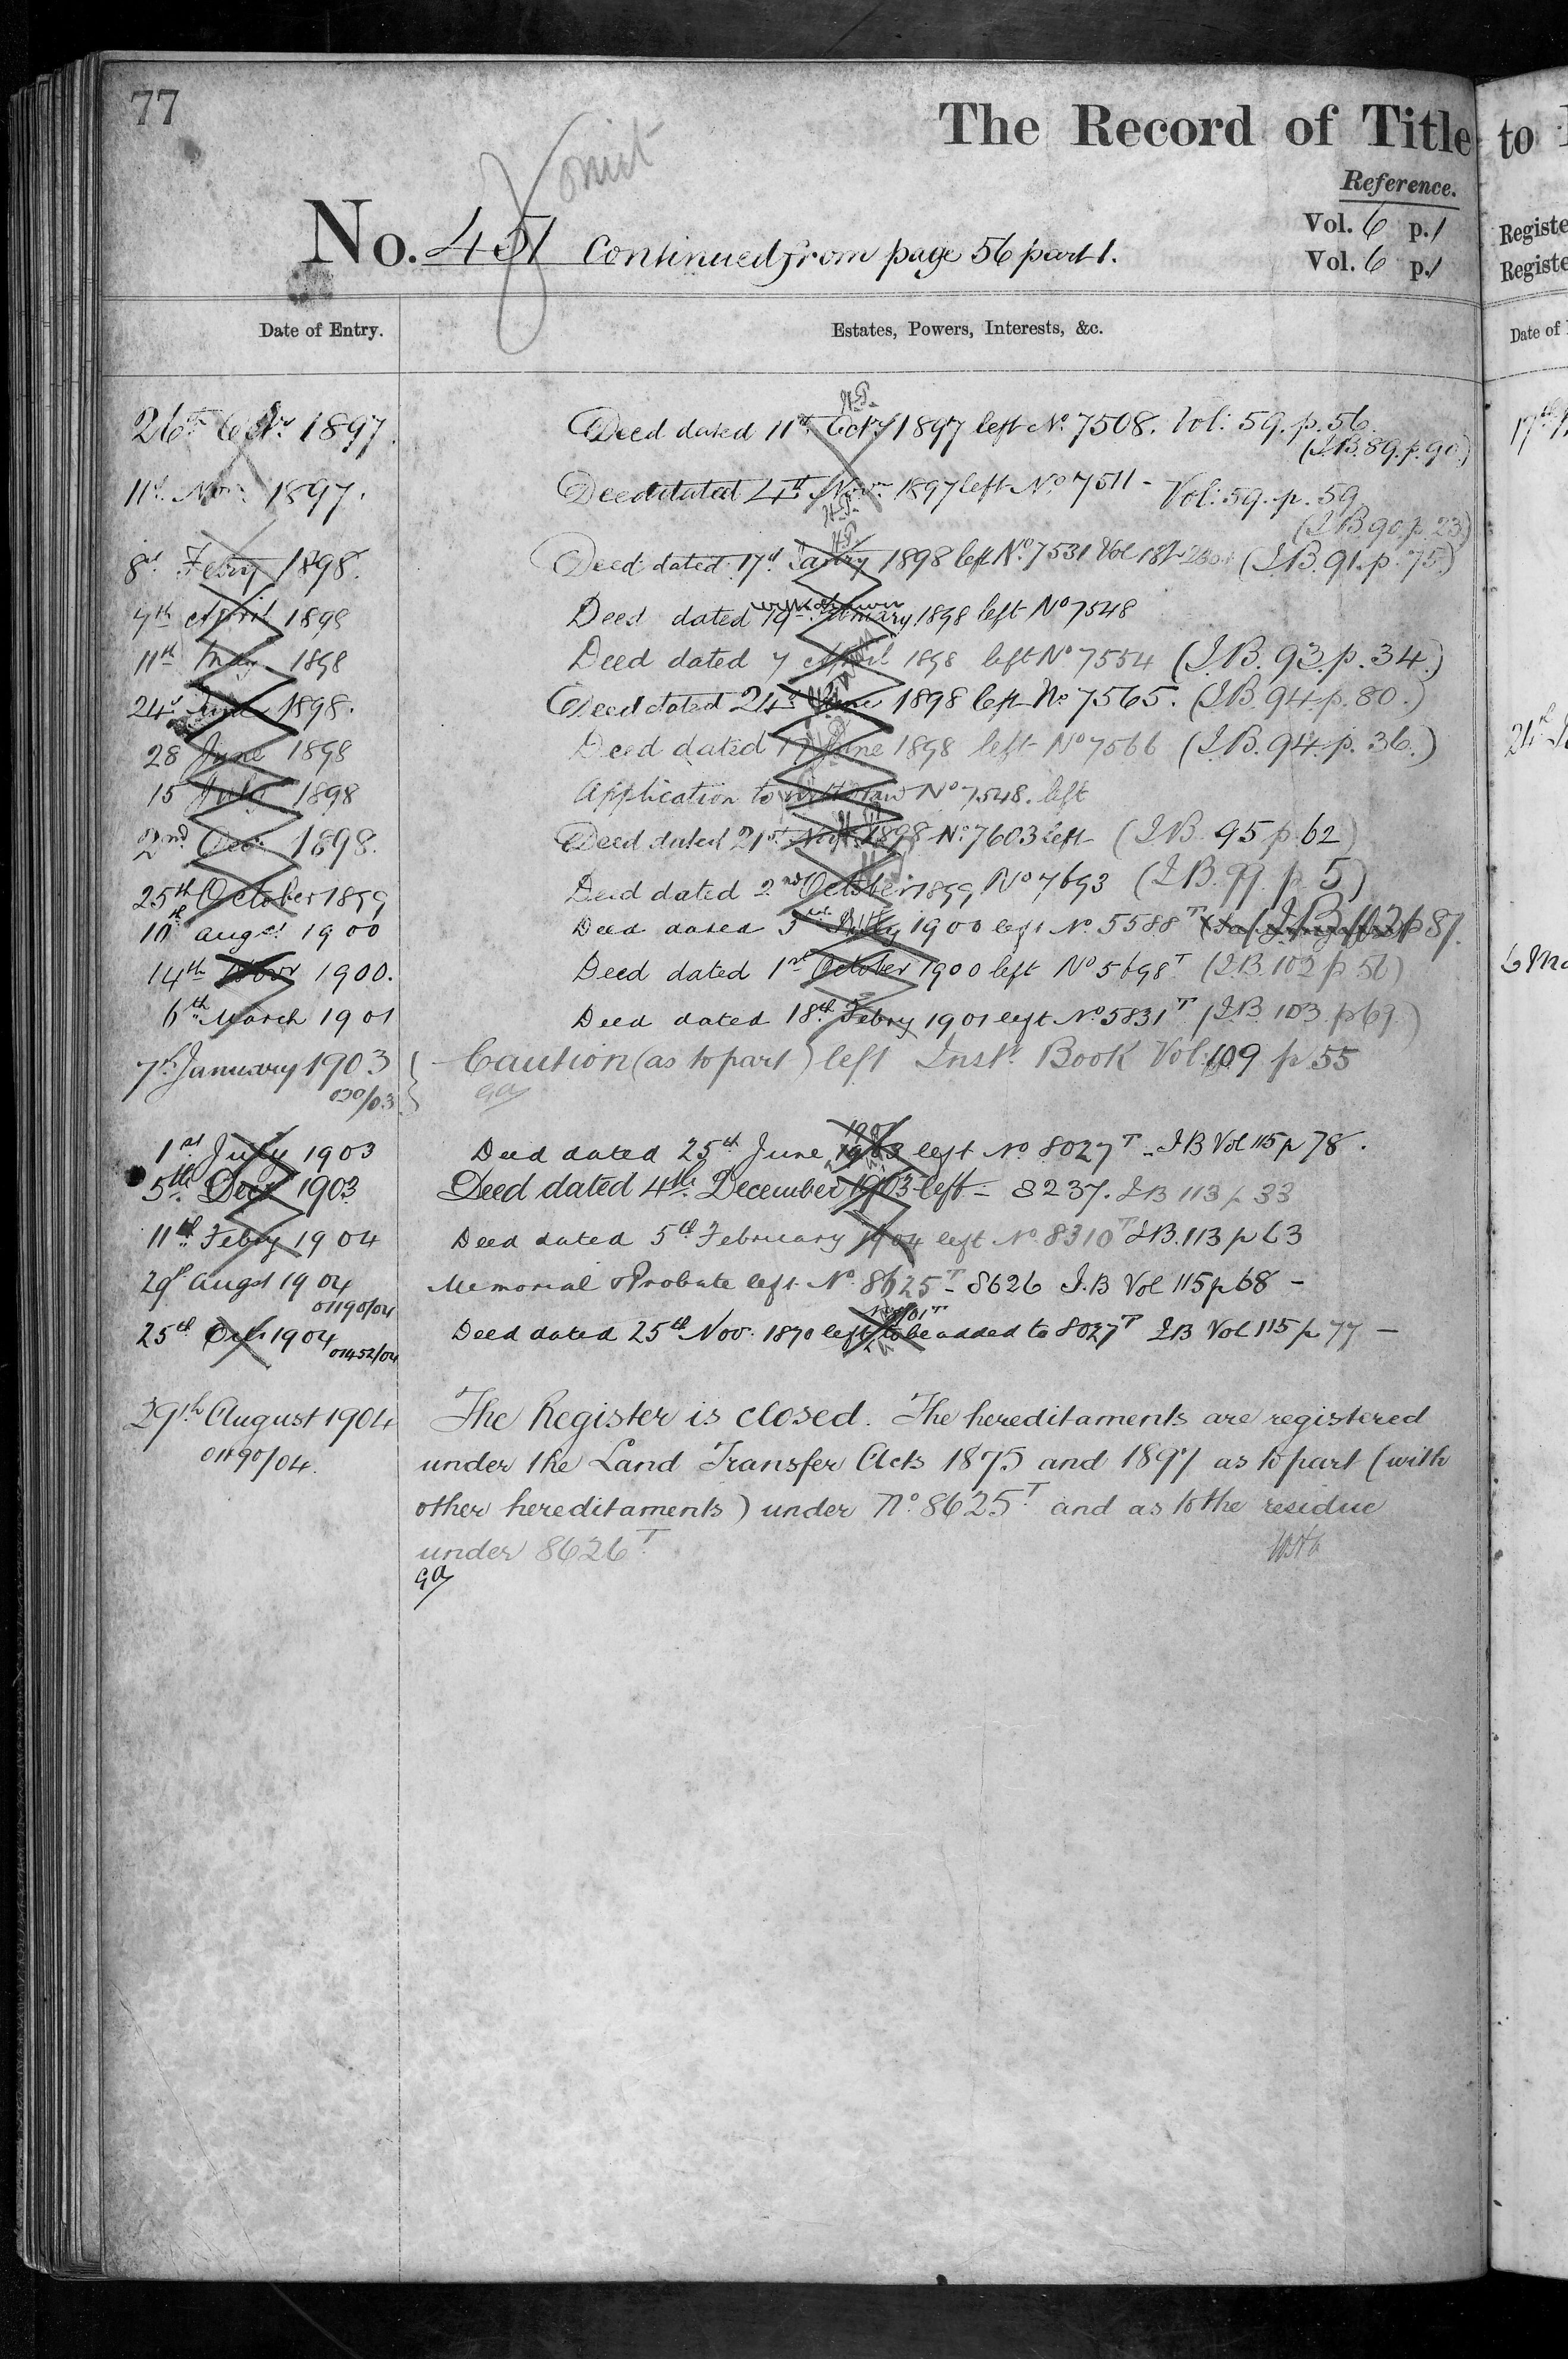 77
The Record of Title to
omit
Reference.
No. 451 Continued from page 56 part 1.
Vol. 6 p. 1
Vol. 6 p. 1
Registe
Registe
Date of Entry.
Estates, Powers, Interests, &c.
Date of
26th Octr 1897.
Deed dated 11th Octr 1897 left No. 7508. Vol: 59. p. 56.
(I.B. 89. p. 90.)
11th Novr 1897.
Deed dated 4th Novr 1897 left No 7511 - Vol: 59. p. 59
(I B 90. p. 23)
8th Febry 1898.
Deed dated 17th Janry 1898 left No. 7531 Vol (I.B. 91. p. 75.)
7th April 1898
withdrawn
Deed dated 19th January 1898 left No 7548
11th May 1898
Deed dated 7 April 1898 left No 7554 (I.B. 93. p. 34.)
24th June 1898.
Deed dated 24th June 1898 left No 7565. (I.B. 94. p. 80.)
28 June 1898
Deed dated 17 June 1898 left No 7566 (I.B. 94. p. 36.)
15 July 1898
Application to withdraw No 7548. left
2nd Dec 1898.
Deed dated 21st Novr 1898 No. 7603 left (I.B. 95 p. 62)
25th October 1899
Deed dated 2nd October 1899 No 7693 (I.B. 99. p. 5)
10th augst 1900
Deed dated 3rd July 1900 left No. 5588T p 87.
14th Novr 1900.
Deed dated 1st October 1900 left No 5698T (I.B. 102 p 56)
6th March 1901
Deed dated 18th Febry 1901 left No. 5831T (I.B. 103. p 69.)
7th January 1903
Caution (as to part) left Inst. Book Vol. 109 p 55
030/03
GA
1st July 1903
1901
Deed dated 25th June 1903 left No 8027T - I B Vol 115 p 78.
5th Decr 1903
Deed dated 4th December 1903 left - 8237. I B 113 p 33
11th Febry 1904
Deed dated 5th February 1904 left No. 8310T I.B. 113 p 63
29th augst 1904
01190/04
Memorial & Probate left No. 8625T - 8626 I.B Vol 115 p 68 -
25th Octr 1904
01452/04
Deed dated 25th Nov. 1870 left to be added to 8027T I B Vol 115 p 77 -
29th August 1904
01190/04.
The Register is closed. The hereditaments are registered
under the Land Transfer Acts 1875 and 1897 as to part (with
other hereditaments) under No. 8625T and as to the residue
under 8626T.
GA